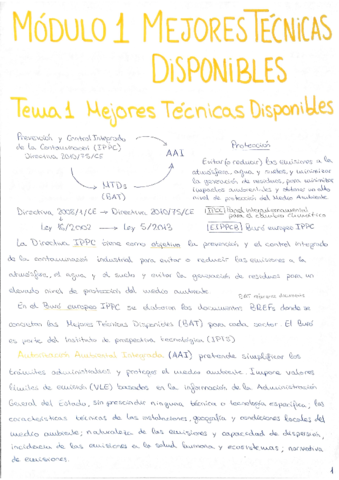 MÓDULO 1 MEJORES TÉCNICAS
DISPONIBLES
Tema 1 Mejores Técnicas Disponibles
Prevención y Control Integrado
de la Contaminación (IPPC)
Directiva 2010/75/CE
AAI
MTDs
(BAT)
Protección
Evitar (o reducir) las emisiones a la
atmósfera, agua y suelos, y minimizar
la generación de residuos, para minimizar
impactos ambientales y obtener un alto
nivel de protección del Medio Ambiente
Directiva 2008/1/CE → Directiva 2010/75/CE
Panel intergubernamental
para el cambio climático
Ley 16/2002 → Ley 5/2013
EIPPCB Buró europeo IPPC
La Directiva IPPC tiene como objetivo la prevención y el control integrado
de la contaminación industrial para evitar o reducir las emisiones a la
atmósfera, el agua y el suelo y evitar la generación de residuos para un
elevado nivel de protección del medio ambiente.
BAT reference document
En el Buró europeo IPPC se elaboran los documentos BREFs donde se
consultan las Mejores Técnicas Disponibles (BAT) para cada sector. El Buró
es parte del Instituto de prospectiva tecnológica (IPTS)
Autorización Ambiental Integrada (AAI) pretende simplificar los
trámites administrativos y proteger el medio ambiente. Impone valores
límites de emisión (VLE) basados en la información de la Administración
General del Estado, sin prescindir ninguna técnica o tecnología específica, las
características técnicas de las instalaciones, geografía y condiciones locales del
medio ambiente; naturaleza de las emisiones y capacidad de dispersión,
incidencia de las emisiones a la salud humana y ecosistemas; normativa
de emisiones.
1